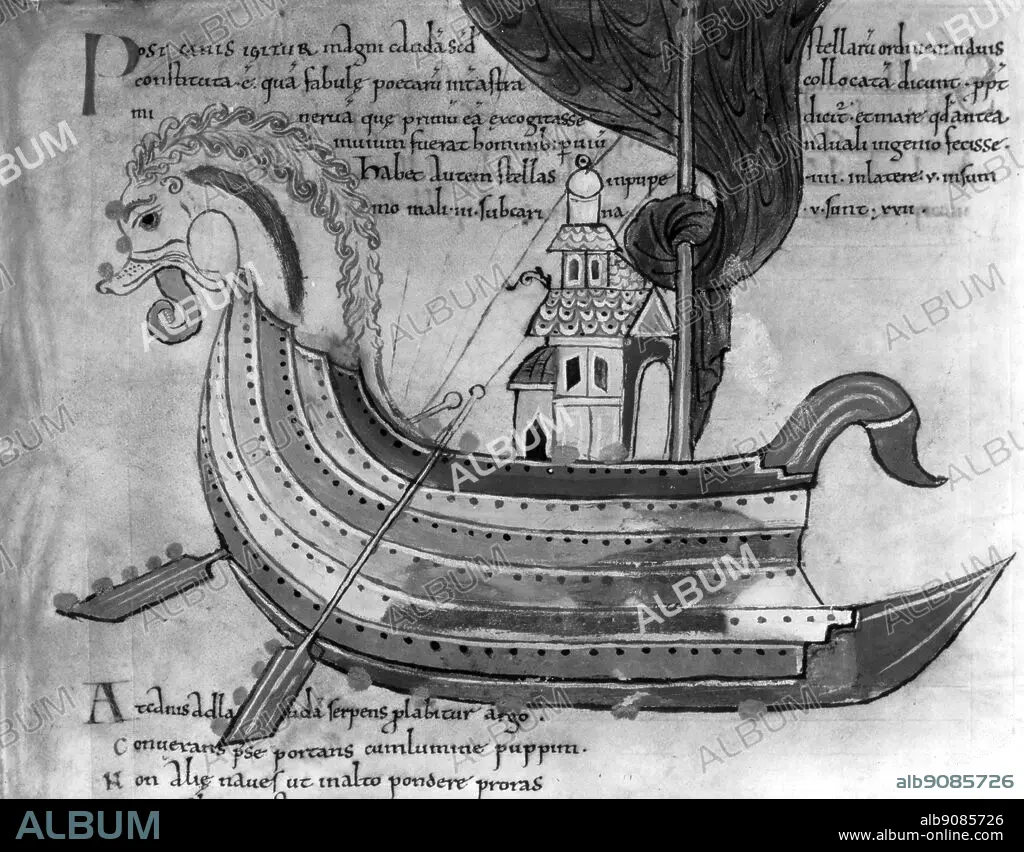 Post canis igitur magni caudā sed stellarū ordine induis
constituta · ē · quā fabulę poetarū int̄ astra collocatā dicunt · ꝓpt̄
mi nervā quę primū eā excogitasse dicit̄ · et mare qd̄ antea
inuium fuerat hominib: ꝑuiū nauali ingenio fecisse ·
habet autem stellas in puppe · iiii · in latere · v · in sum
mo mali · iii · sub cari na · v · sunt · xvii ·
At canis ad caudā serpens plabitur argo ·
Conuerans pse portans cum lumine puppim ·
Non alię naues ut in alto pondere proras
ALBUM
alb9085726
alb9085726
www.album-online.com